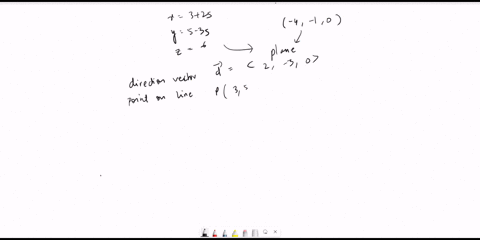 x = 3+2s
(-4, -1, 0)
y = 5-3s
z = 6
plane
direction vector d⃗ = < 2, -3, 0>
point on line P( 3, 5